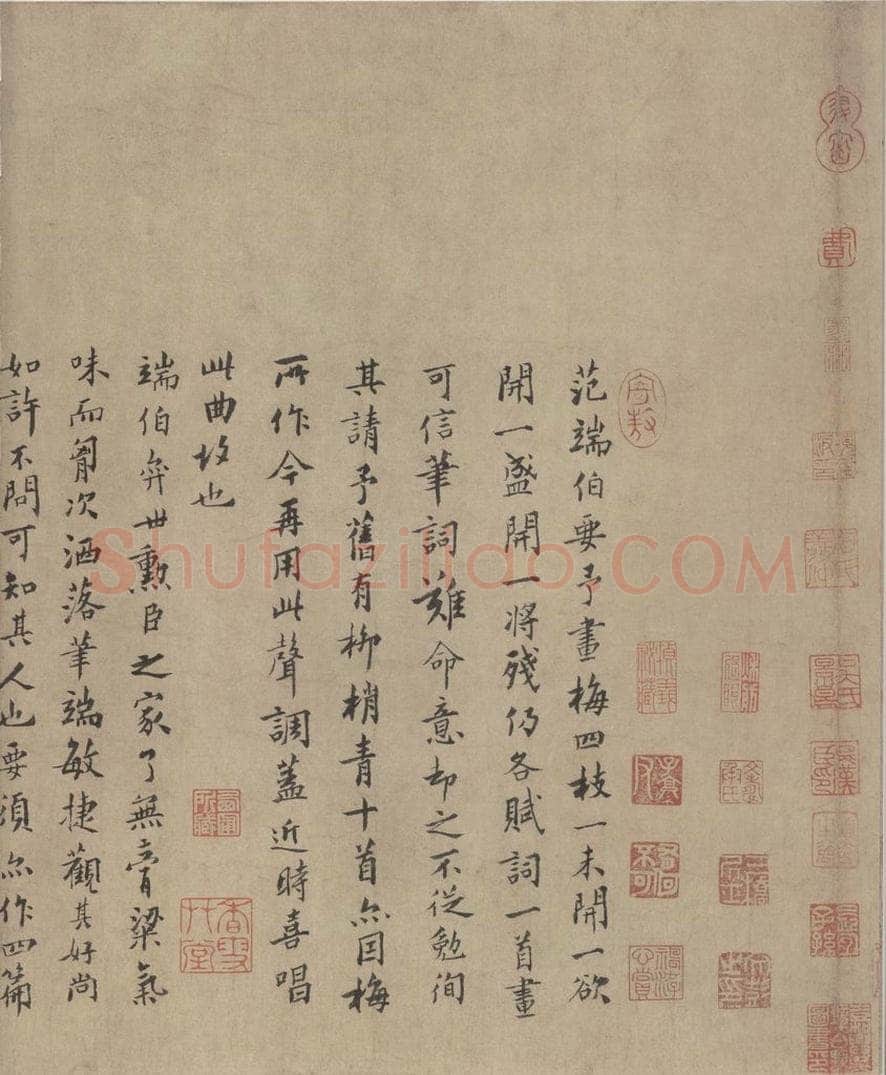 范端伯要予畫梅四枝一未開一欲
開一盛開一將殘仍各賦詞一首畫
可信筆詞難命意却之不從勉徇
其請予舊有柳梢青十首亦因梅
所作今再用此聲調蓋近時喜唱
此曲故也
端伯奕世勲臣之家了無膏粱氣
味而胷次洒落筆端敏捷觀其好尚
如許不問可知其人也要須亦作四篇
Shufaziliao.COM